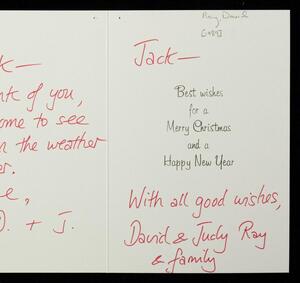 k—
nk of you,
ome to see
n the weather
er.
e,
D. + J.
Ray, David
Jack—
Best wishes
for a
Merry Christmas
and a
Happy New Year
With all good wishes,
David & Judy Ray
& family